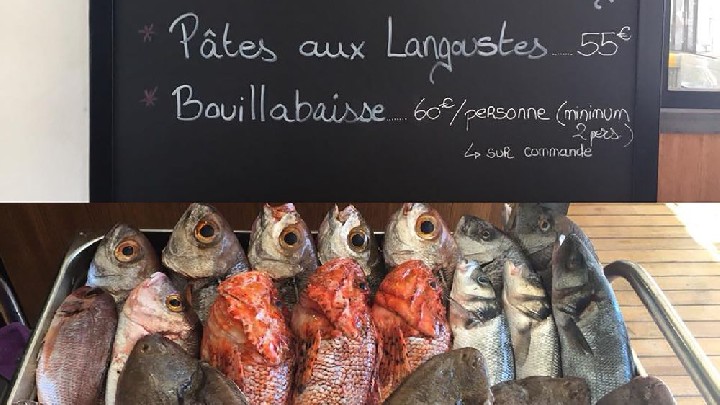 * Pâtes aux Langoustes ..... 55€
* Bouillabaisse ..... 60€/personne (minimum
2 pers)
↳ sur commande